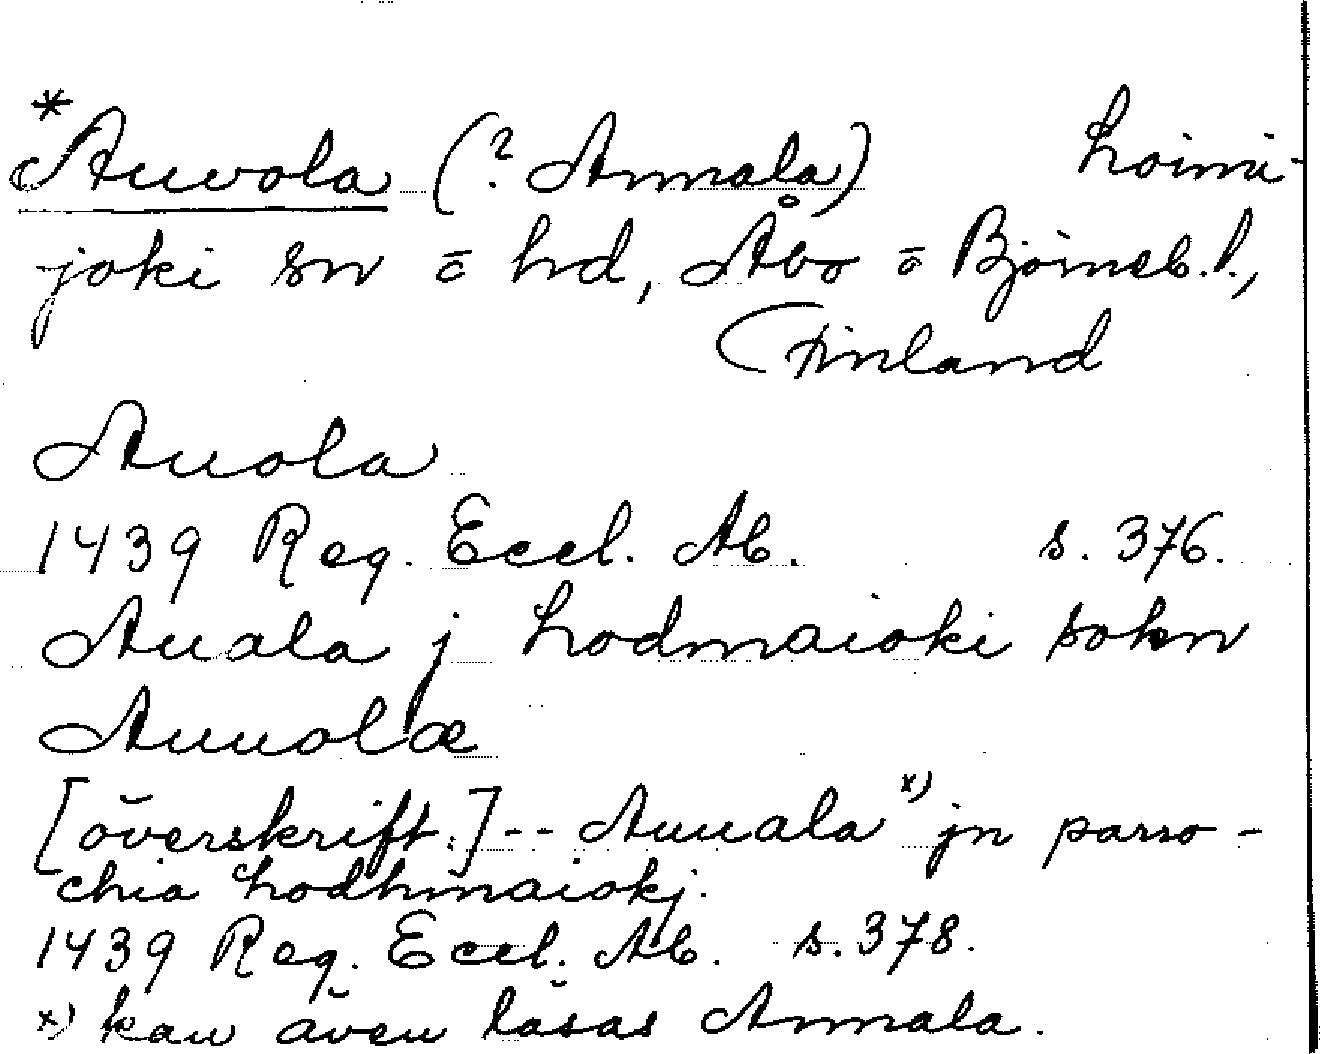 *Auvola (? Annala) Loimi-
joki sn o hd, Åbo o Björneb. l.,
Finland
Auola
1439 Reg. Eccl. Ab. s. 376.
Auala j Lodmaioki sokn
Auuolæ
[överskrift.] -- Auuala x) jn parro-
chia lodhmaiokj.
1439 Reg. Eccl. Ab. s. 378.
x) kan även läsas Annala.